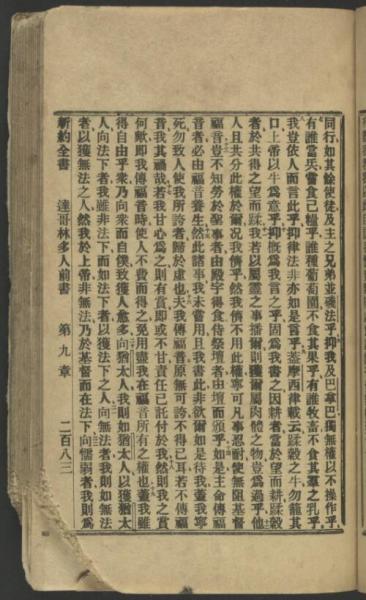 同行如其餘使徒及主之兄弟並磯法乎抑我及巴拿巴獨無權以不操作乎
有誰當兵嘗食己糧乎誰種葡萄園不食其果乎有誰牧畜不食其羣之乳乎
我豈依人而言此乎抑律法非亦如是言乎葢摩西律載云蹂穀之牛勿籠其
口上帝以牛爲意乎抑槪爲我言之乎固爲我書之因耕者當於望而耕蹂穀
者於共得之望而蹂我若以屬靈之事播爾則獲爾屬肉體之物豈爲過乎他
人且共分此權於爾况我儕乎然我儕不用此權寧可凡事忍耐使無阻基督
福音豈不知勞於聖事者由殿宇得食侍祭壇者由壇而頒乎如是主命傳福
音者必由福音養生然此諸事我未嘗用且我書此非欲爾如是待我葢我寧
死勿致人使我所誇者歸於虛也夫我傳福音原無可誇不得已耳若不傳福
音我其禍哉若我甘心爲之則有賞卽或不甘責任已託付於我然則我之賞
何歟卽我傳福音時使人不費而得之免用盡我在福音所有之權也葢我雖
得自由乎衆乃向衆而自僕致獲人愈多向猶太人我則如猶太人以獲猶太
人向法下者我雖非法下而如法下者以獲法下之人向無法者我則如無法
者以獲無法之人然我於上帝非無法乃於基督而在法下向懦弱者我則爲
新約全書 達哥林多人前書 第九章 二百八三